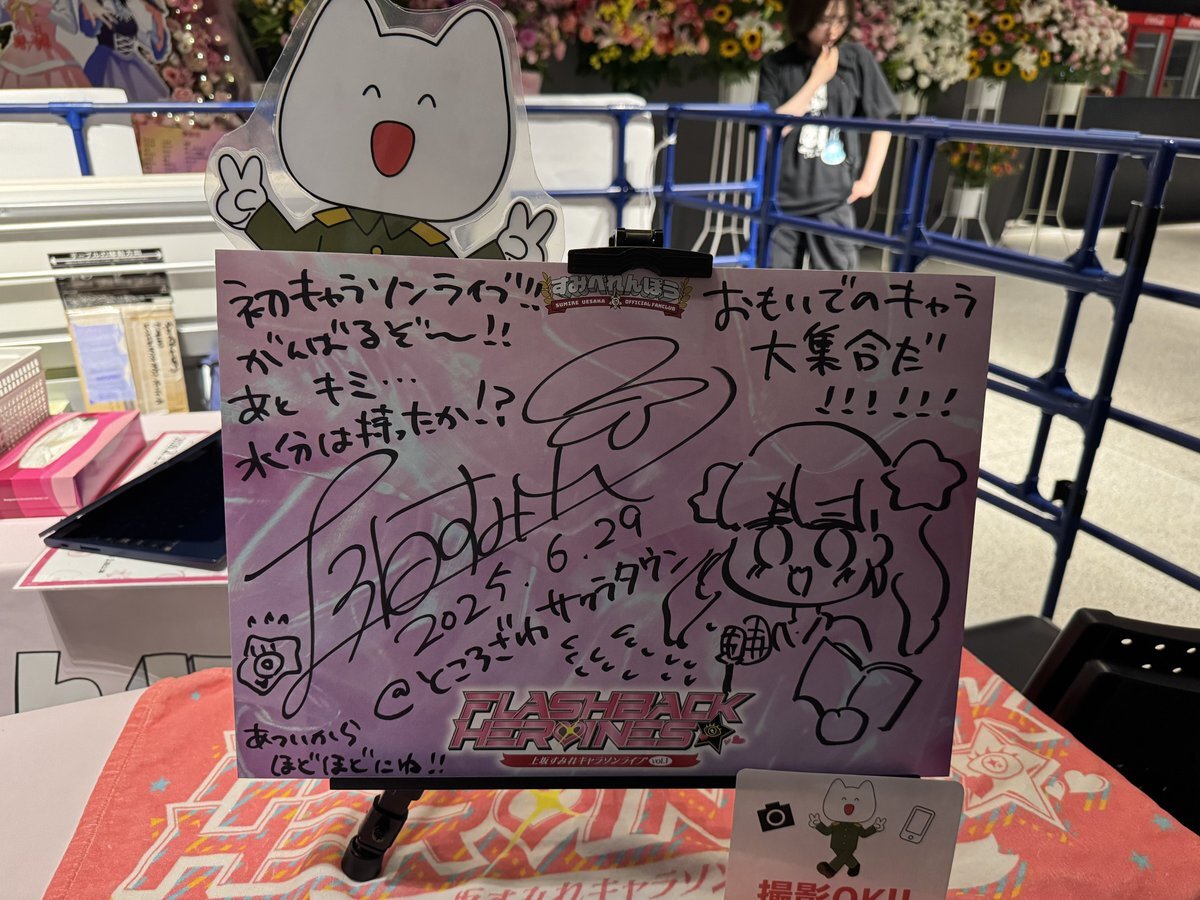 初キャラソンライブ!!
がんばるぞ〜!!
あと キミ…
水分は持ったか!?
すみぺれんぼう
SUMIRE UESAKA OFFICIAL FANCLUB
おもいでのキャラ
大集合だ
!!!!!!
2025.6.29
@ところざわサクラタウン
あついから
ほどほどにね!!
FLASHBACK
HEROINES
上坂すみれキャラソンライブ vol.1
上坂すみれキャラソン
撮影OK!!